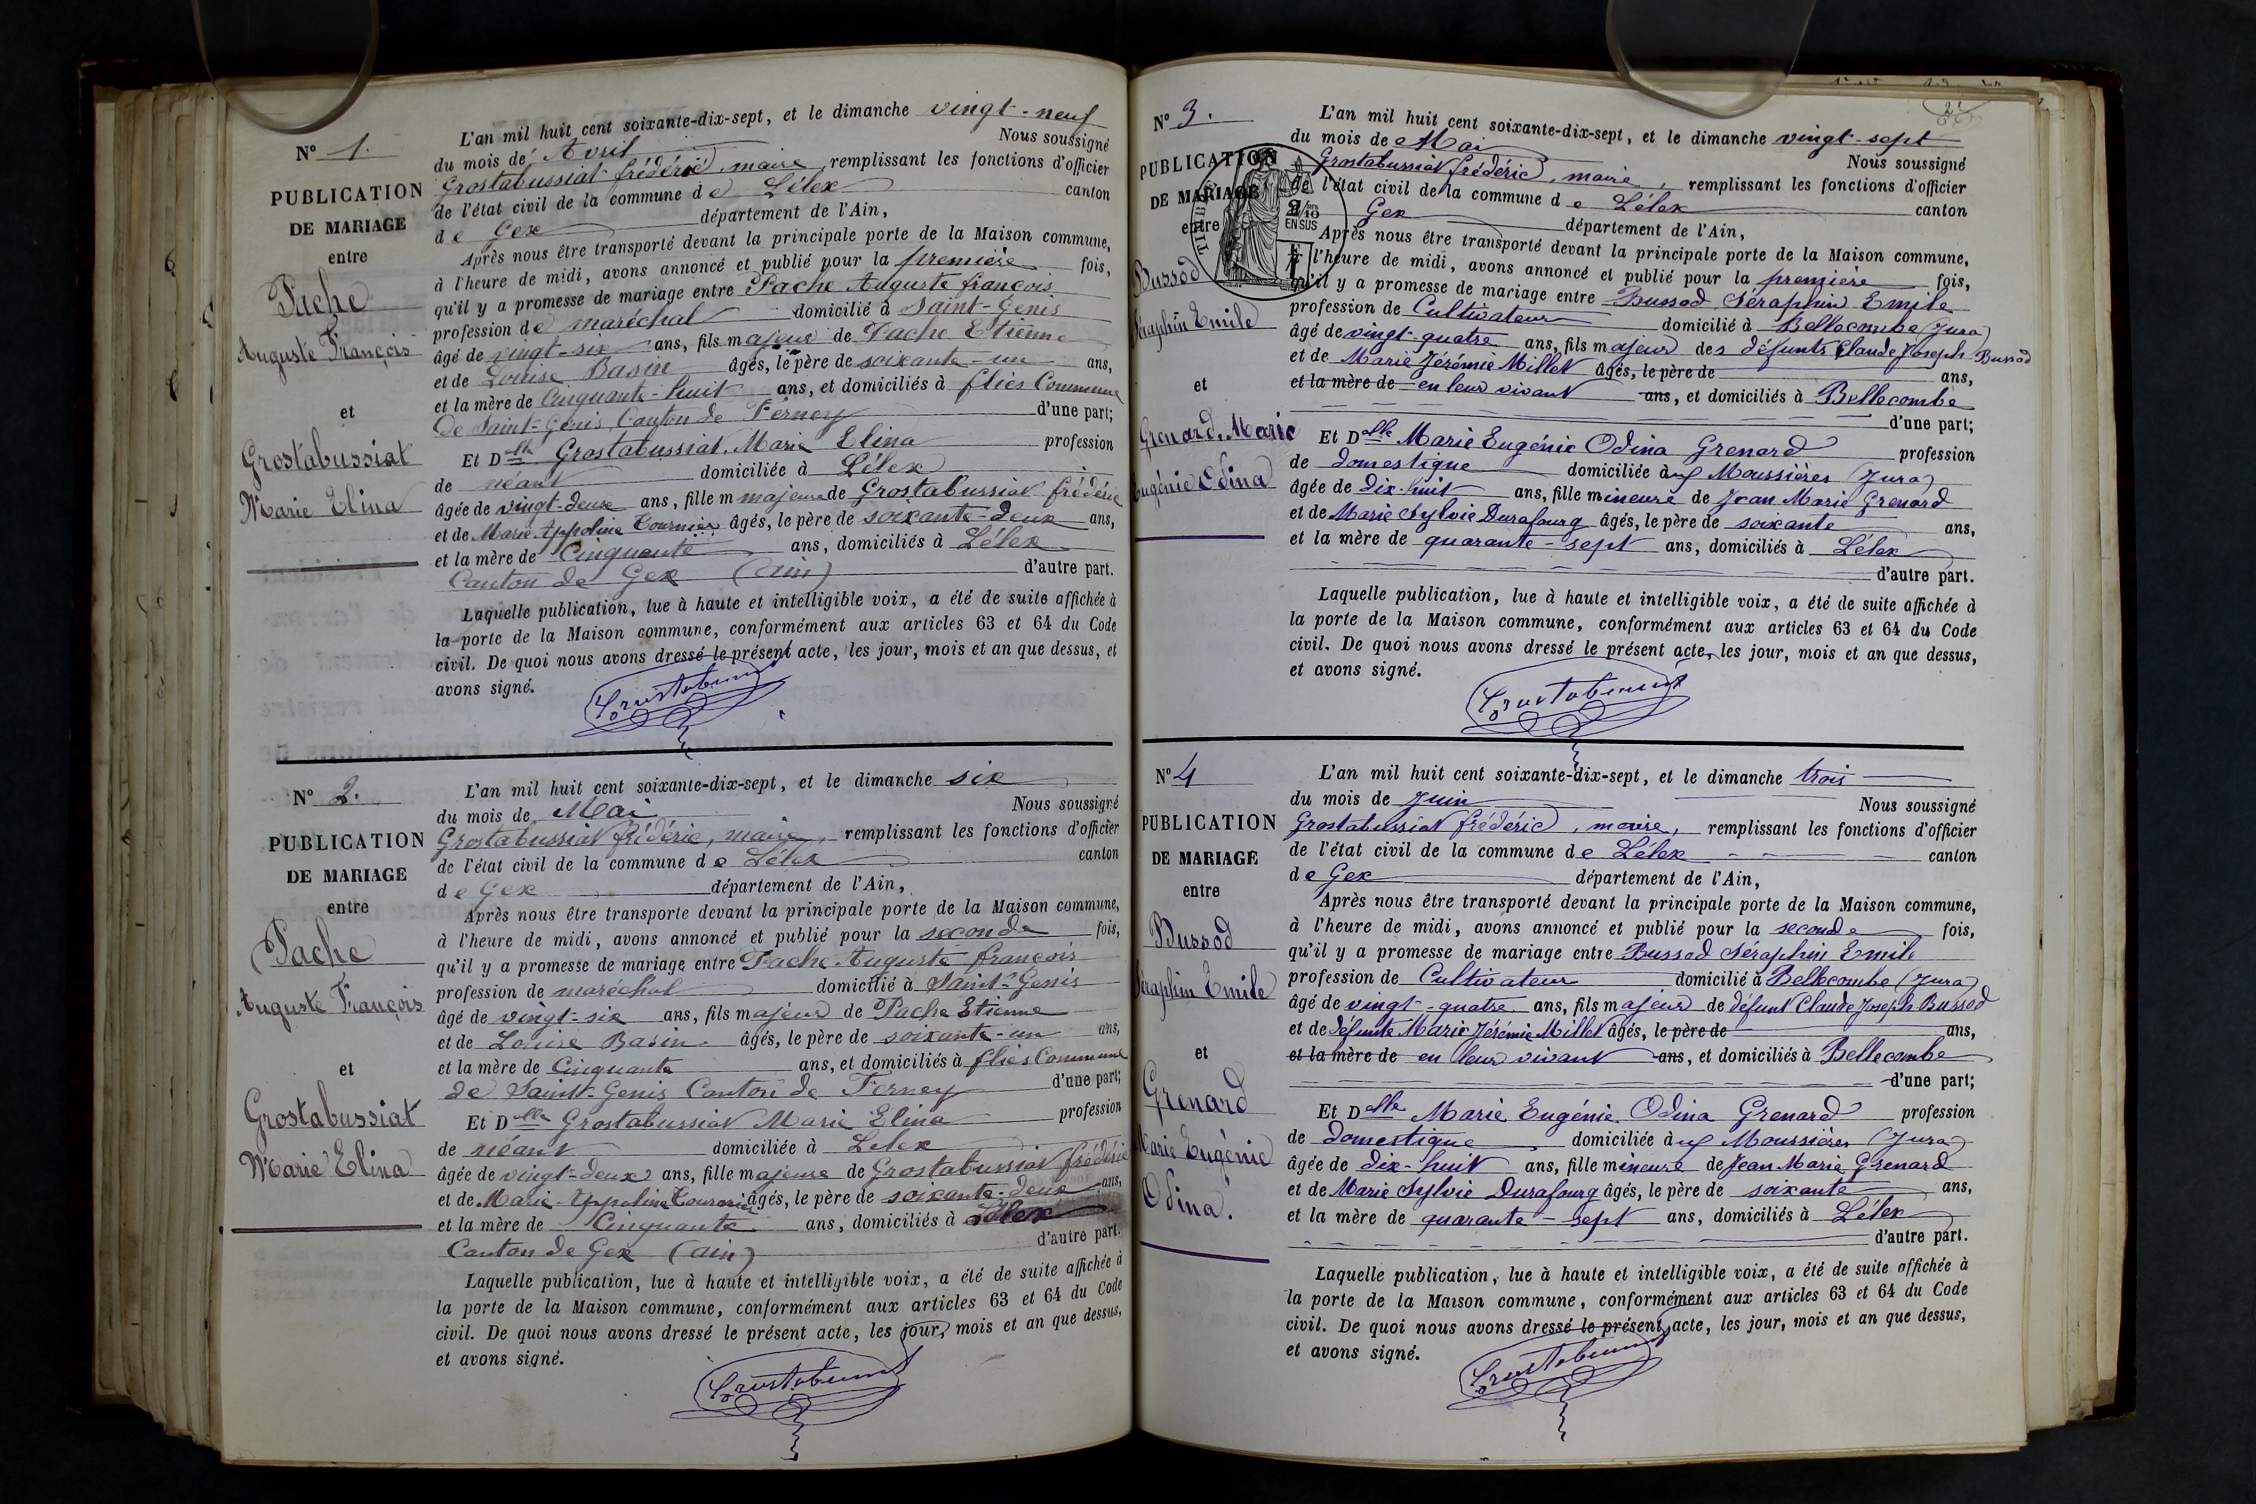 N° 1.
PUBLICATION
DE MARIAGE
entre
Pache
Auguste François
et
Grostabussiat
Marie Elina
L'an mil huit cent soixante-dix-sept, et le dimanche vingt-neuf
du mois de Avril Nous soussigné
Grostabussiat frédéric, maire, remplissant les fonctions d'officier
de l'état civil de la commune de Lélex canton
de Gex département de l'Ain,
Après nous être transporté devant la principale porte de la Maison commune,
à l'heure de midi, avons annoncé et publié pour la première fois,
qu'il y a promesse de mariage entre Pache Auguste françois
profession de maréchal domicilié à Saint-Genis
âgé de vingt-six ans, fils majeur de Pache Etienne
et de Louise Basin âgés, le père de soixante-un ans,
et la mère de Cinquante-huit ans, et domiciliés à flies Commune
de Saint-Genis, Canton de Ferney d'une part;
Et Dlle Grostabussiat, Marie Elina profession
de néant domiciliée à Lélex
âgée de vingt-deux ans, fille m majeure de Grostabussiat frédéric
et de Marie Appoline Tournier âgés, le père de soixante-deux ans,
et la mère de Cinquante ans, domiciliés à Lélex
Canton de Gex (ain) d'autre part.
Laquelle publication, lue à haute et intelligible voix, a été de suite affichée à
la porte de la Maison commune, conformément aux articles 63 et 64 du Code
civil. De quoi nous avons dressé le présent acte, les jour, mois et an que dessus, et
avons signé.
Grostabussiat
N° 2.
PUBLICATION
DE MARIAGE
entre
Pache
Auguste François
et
Grostabussiat
Marie Elina
L'an mil huit cent soixante-dix-sept, et le dimanche six
du mois de Mai Nous soussigné
Grostabussiat frédéric, maire, remplissant les fonctions d'officier
de l'état civil de la commune de Lélex canton
de Gex département de l'Ain,
Après nous être transporté devant la principale porte de la Maison commune,
à l'heure de midi, avons annoncé et publié pour la seconde fois,
qu'il y a promesse de mariage entre Pache Auguste françois
profession de maréchal domicilié à Saint-Genis
âgé de vingt-six ans, fils majeur de Pache Etienne
et de Louise Basin âgés, le père de soixante-un ans,
et la mère de Cinquante ans, et domiciliés à flies Commune
de Saint-Genis Canton de Ferney d'une part;
Et Dlle Grostabussiat Marie Elina profession
de néant domiciliée à Lelex
âgée de vingt-deux ans, fille majeure de Grostabussiat frédéric
et de Marie Appoline Tournier âgés, le père de soixante-deux ans,
et la mère de Cinquante ans, domiciliés à Lélex
Canton de Gex (ain) d'autre part.
Laquelle publication, lue à haute et intelligible voix, a été de suite affichée à
la porte de la Maison commune, conformément aux articles 63 et 64 du Code
civil. De quoi nous avons dressé le présent acte, les jour, mois et an que dessus,
et avons signé.
Grostabussiat
N° 3.
PUBLICATION
DE MARIAGE
entre
Bussod
Séraphin Emile
et
Grenard, Marie
Eugénie Odina
2/10
EN SUS
L'an mil huit cent soixante-dix-sept, et le dimanche vingt-sept
du mois de Mai Nous soussigné
Grostabussiat frédéric, maire, remplissant les fonctions d'officier
de l'état civil de la commune de Lélex canton
Gex département de l'Ain,
Après nous être transporté devant la principale porte de la Maison commune,
l'heure de midi, avons annoncé et publié pour la première fois,
qu'il y a promesse de mariage entre Bussod Séraphin Emile
profession de Cultivateur domicilié à Bellecombe (Jura)
âgé de vingt-quatre ans, fils majeur des défunts Claude Joseph Bussod
et de Marie Jérémie Millet âgés, le père de ans,
et la mère de en leur vivant ans, et domiciliés à Bellecombe
d'une part;
Et Dlle Marie Eugénie Odina Grenard profession
de domestique domiciliée aux Moussières (Jura)
âgée de dix-huit ans, fille mineure de Jean Marie Grenard
et de Marie Sylvie Durafourg âgés, le père de soixante ans,
et la mère de quarante-sept ans, domiciliés à Lélex
d'autre part.
Laquelle publication, lue à haute et intelligible voix, a été de suite affichée à
la porte de la Maison commune, conformément aux articles 63 et 64 du Code
civil. De quoi nous avons dressé le présent acte, les jour, mois et an que dessus,
et avons signé.
Grostabussiat
N° 4
PUBLICATION
DE MARIAGE
entre
Bussod
Séraphin Emile
et
Grenard
Marie Eugénie
Odina.
L'an mil huit cent soixante-dix-sept, et le dimanche trois
du mois de Juin Nous soussigné
Grostabussiat frédéric, maire, remplissant les fonctions d'officier
de l'état civil de la commune de Lélex canton
de Gex département de l'Ain,
Après nous être transporté devant la principale porte de la Maison commune,
à l'heure de midi, avons annoncé et publié pour la seconde fois,
qu'il y a promesse de mariage entre Bussod Séraphin Emile
profession de Cultivateur domicilié à Bellecombe (Jura)
âgé de vingt-quatre ans, fils majeur de défunt Claude Joseph Bussod
et de défunte Marie Jérémie Millet âgés, le père de ans,
et la mère de en leur vivant ans, et domiciliés à Bellecombe
d'une part;
Et Dlle Marie Eugénie Odina Grenard profession
de domestique domiciliée aux Moussières (Jura)
âgée de dix-huit ans, fille mineure de Jean Marie Grenard
et de Marie Sylvie Durafourg âgés, le père de soixante ans,
et la mère de quarante-sept ans, domiciliés à Lélex
d'autre part.
Laquelle publication, lue à haute et intelligible voix, a été de suite affichée à
la porte de la Maison commune, conformément aux articles 63 et 64 du Code
civil. De quoi nous avons dressé le présent acte, les jour, mois et an que dessus,
et avons signé.
Grostabussiat